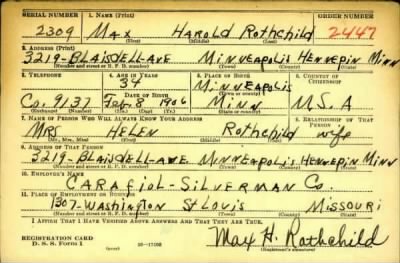 SERIAL NUMBER 1. NAME (Print) ORDER NUMBER
2309 MAX HAROLD ROTHCHILD 2447
(First) (Middle) (Last)
2. ADDRESS (Print)
3219-BLAISDELL-AVE MINNEAPOLIS HENNEPIN MINN
(Number and street or R. F. D. number) (Town) (County) (State)
3. TELEPHONE 4. AGE IN YEARS 5. PLACE OF BIRTH 6. COUNTRY OF CITIZENSHIP
34 MINNEAPOLIS
DATE OF BIRTH (Town or county)
Co. 9137 Feb. 8 1906 MINN U.S.A
(Exchange) (Number) (Mo.) (Day) (Yr.) (State or country)
7. NAME OF PERSON WHO WILL ALWAYS KNOW YOUR ADDRESS 8. RELATIONSHIP OF THAT PERSON
MRS HELEN Rothchild wife
(Mr., Mrs., Miss) (First) (Middle) (Last)
9. ADDRESS OF THAT PERSON
3219-BLAISDELL-AVE MINNEAPOLIS HENNEPIN MINN
(Number and street or R. F. D. number) (Town) (County) (State)
10. EMPLOYER'S NAME
CARAFIOL-SILVERMAN Co.
11. PLACE OF EMPLOYMENT OR BUSINESS
1307-WASHINGTON ST LOUIS MISSOURI
(Number and street or R. F. D. number) (Town) (County) (State)
I AFFIRM THAT I HAVE VERIFIED ABOVE ANSWERS AND THAT THEY ARE TRUE.
REGISTRATION CARD
D. S. S. Form 1 16-17105 Max H. Rothchild
(Registrant's signature)